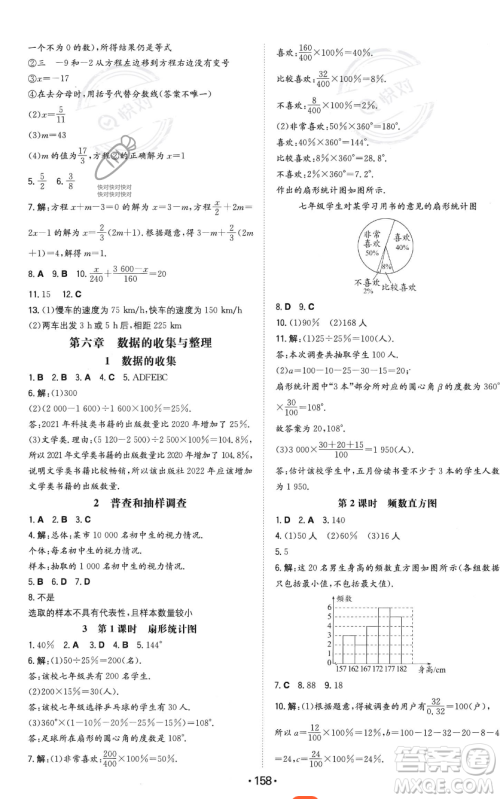 一个不为0的数),所得结果仍是等式
②三 -9和-2从方程左边移到方程右边没有变号
③x=-17
④在去分母时,用括号代替分数线(答案不唯一)
(2)x=5/11
(3)m=43
(4)m的值为17/3,方程②的解为x=2
快对快对快对
快对快对快对
5. 5/2 6. 3/8
7.解:方程x+m-3=0的解为x=3-m,方程x+2/3=
2x-1的解为x=2/3(2m+1).根据题意,得3-m=2/3(2m
+1).解得m=1.
8.A 9.B 10. x/240+(3 600-x)/100=20
11.15 12.C
13.(1)慢车的速度为75 km/h,快车的速度为150 km/h
(2)两车出发2 h后,相距225 km
第六章 数据的收集与整理
1 数据的收集
1.B 2.B 3.C 4.A 5.ADFEBC
6.解:(1)300
(2)(1 000-500)÷2 000×100%=25%.
答:2021年科技类书籍的出版数量比2020年增加了25%.
(3)文学类.理由:(5 120-2 500)÷2 500×100%=104.8%,
所以文学类书籍的出版数量比2020年增加104.8%,
说明文学类书籍畅销,所以出版社在2022年应该增加
文学类书籍的出版数量.
2 普查和抽样调查
1.A 2.B 3.C
4.解:总体:某市10 000名初中生的视力情况.
个体:每名初中生的视力情况.
样本:抽查的1 200名初中生的视力情况.
5.B 6.D 7.C
8.不是
选取的样本不具有代表性,且样本数量较小
3 第1课时 扇形统计图
1.40% 2.A 3.B 4.D 5.144°
6.解:(1)50÷25%=200(人).
答:该校七年级共有200人.
(2)200×15%=30(人).
答:该校七年级选择乒乓球的学生有30人.
(3)360°×(60/200×100%)=108°.
答:足球所在扇形的圆心角的度数为108°.
7.解:(1)非常喜欢:200/400×100%=50%.
喜欢:160/400×100%=40%.
比较喜欢:32/400×100%=8%.
不喜欢:8/400×100%=2%.
(2)非常喜欢:180°
喜欢:40%×360°=144°.
比较喜欢:8%×360°=28.8°.
不喜欢:2%×360°=7.2°.
作出的扇形统计图如图所示.
七年级学生对某学习用书的意见的扇形统计图
非常喜欢50%
喜欢40%
8%
不喜欢2%
比较喜欢
8.D 9.C
10.(1)100% (2)168人
11.解:(1)25÷25%=100(人).
答:本次调查共抽取学生100人.
(2)a=100-10-25-30-15=20.
扇形统计图中“3本”部分所对应的圆心角β的度数为360°
×30/100=108°.
故答案为20,108°.
(3)3 000×(30+20+15)/100=1 950(人).
答:估计该校所有学生中,五月份读书不少于3本的学生人数
为1 950.
第2课时 频数直方图
1.D 2.A 3.140
4.(1)50人 (2)86人 (3)44%
5.5
6.解:这20名男生身高的频数直方图如下(各组数据
只包括最小值,不包括最大值).
频数
6
5
4
3
2
1
0
157 162 167 172 177 182
身高/cm
7.C 8.88 9.18
10.解:(1)根据题意,得调查的用户有32/0.32=100(户),
所以a=12/100×100%=12%,b=100-12-32-20-8-4
=24,c=24/100×100%=24%.
·158·